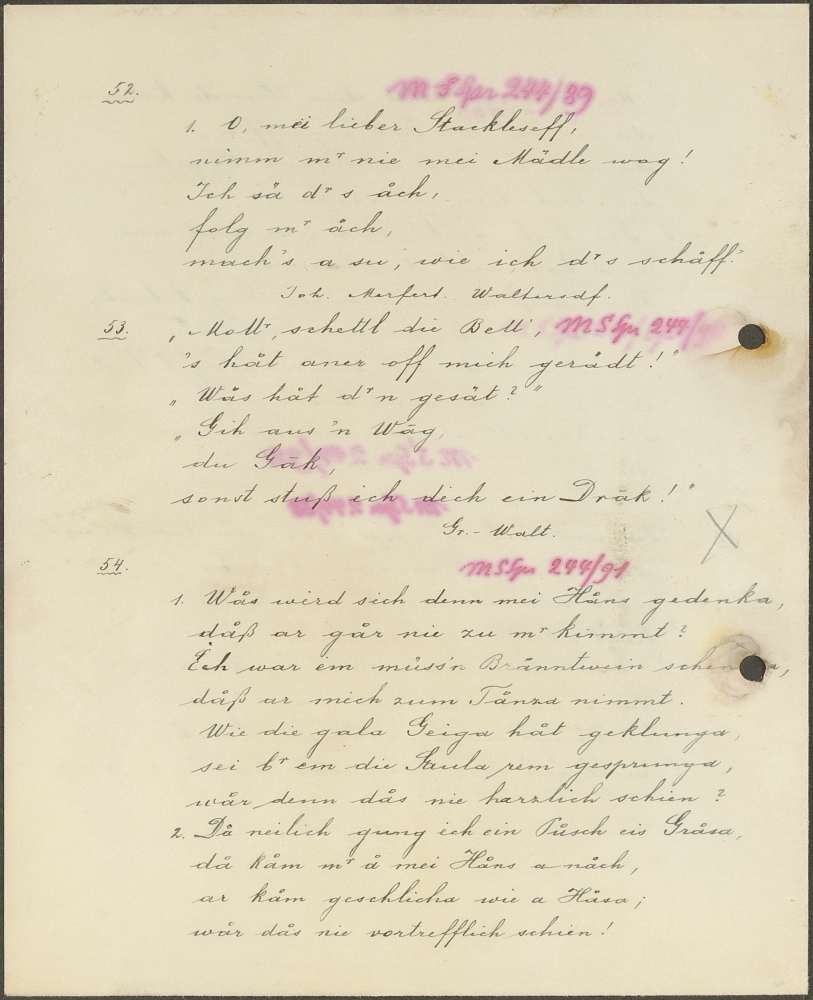 52. M S Spr 244/89
1. O, mëi lieber Stackleseff,
nimm mʳ nie mei Mädle wag!
Ich sä dʳ s åch,
folg mʳ åch,
mach's a su, wie ich dʳ s schåff.
Joh. Merfert. Waltersdf.
53. „Mottʳ, schettl die Bett', M S Spr 244/
's håt aner off mich gerådt!"
„Wås håt dʳ n gesåt?"
„Gih aus 'n Wäg,
du Gäk,
sonst stuß ich dich ein Dräk!"
Gr.- Walt.
54. M S Spr 244/91
1. Wås wird sich denn mei Håns gedenka,
dåß ar går nie zu mʳ kimmt?
Ech war em müss'n Bränntwein
dåß ar mich zum Tånza nimmt.
Wie die gala Geiga håt geklunga,
sei bʳ em die Saula rem gesprunga,
wår denn dås nie harzlich schien?
2. Då neilich gung ich ein Pusch eis Gråsa,
då kåm mʳ å mei Håns a nåch,
ar kåm geschlicha wie a Håsa;
wår dås nie vortrefflich schien!